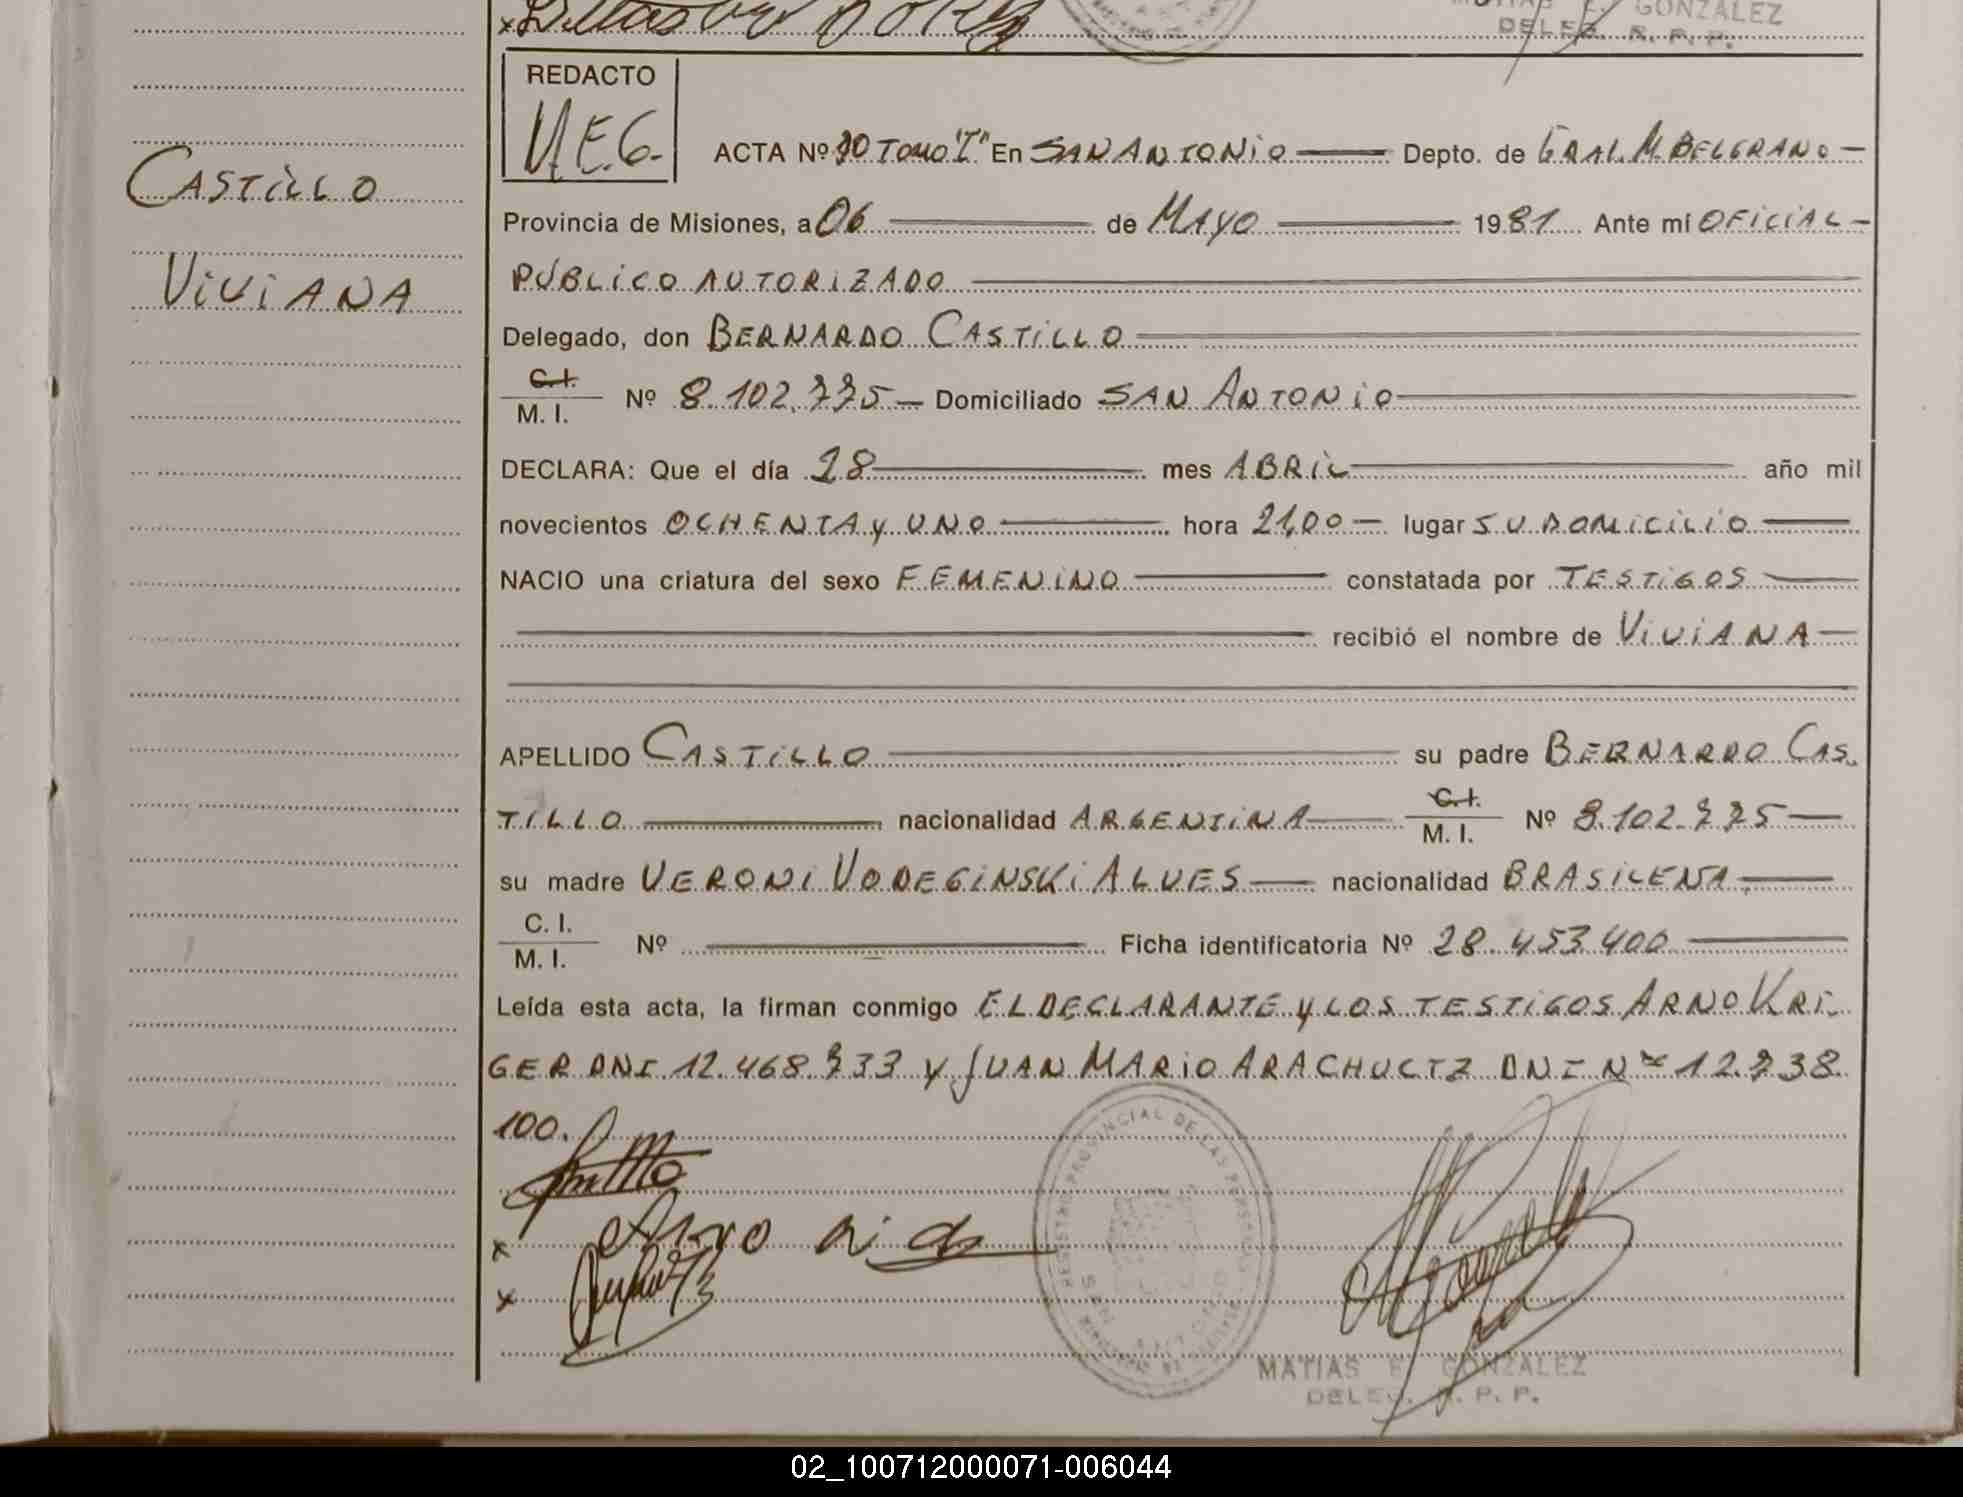 MATIAS E. GONZALEZ
DELEG. R. P. P.
REDACTO
ACTA Nº 90 TOMO "I" En SAN ANTONIO Depto. de GRAL. M. BELGRANO
CASTILLO
Provincia de Misiones, a 06 de MAYO 1981 Ante mí OFICIAL
VIVIANA
PÚBLICO AUTORIZADO
Delegado, don BERNARDO CASTILLO
C.I.
M. I. Nº 8.102.775 Domiciliado SAN ANTONIO
DECLARA: Que el día 28 mes ABRIL año mil
novecientos OCHENTA y UNO hora 21,00 lugar SU DOMICILIO
NACIO una criatura del sexo FEMENINO constatada por TESTIGOS
recibió el nombre de VIVIANA
APELLIDO CASTILLO su padre BERNARDO CAS
TILLO nacionalidad ARGENTINA C.I. M. I. Nº 8.102.775
su madre VERONI VODEGINSKI ALVES nacionalidad BRASILEÑA
C. I.
M. I. Nº Ficha identificatoria Nº 28.453.400
Leída esta acta, la firman conmigo EL DECLARANTE y LOS TESTIGOS ARNO KRI
GER DNI 12.468.733 y JUAN MARIO ARACHUCTZ DNI Nº 12.738.
100.
REGISTRO PROVINCIAL DE LAS PERSONAS
MATIAS E. GONZALEZ
DELEG. R. P. P.
02_100712000071-006044